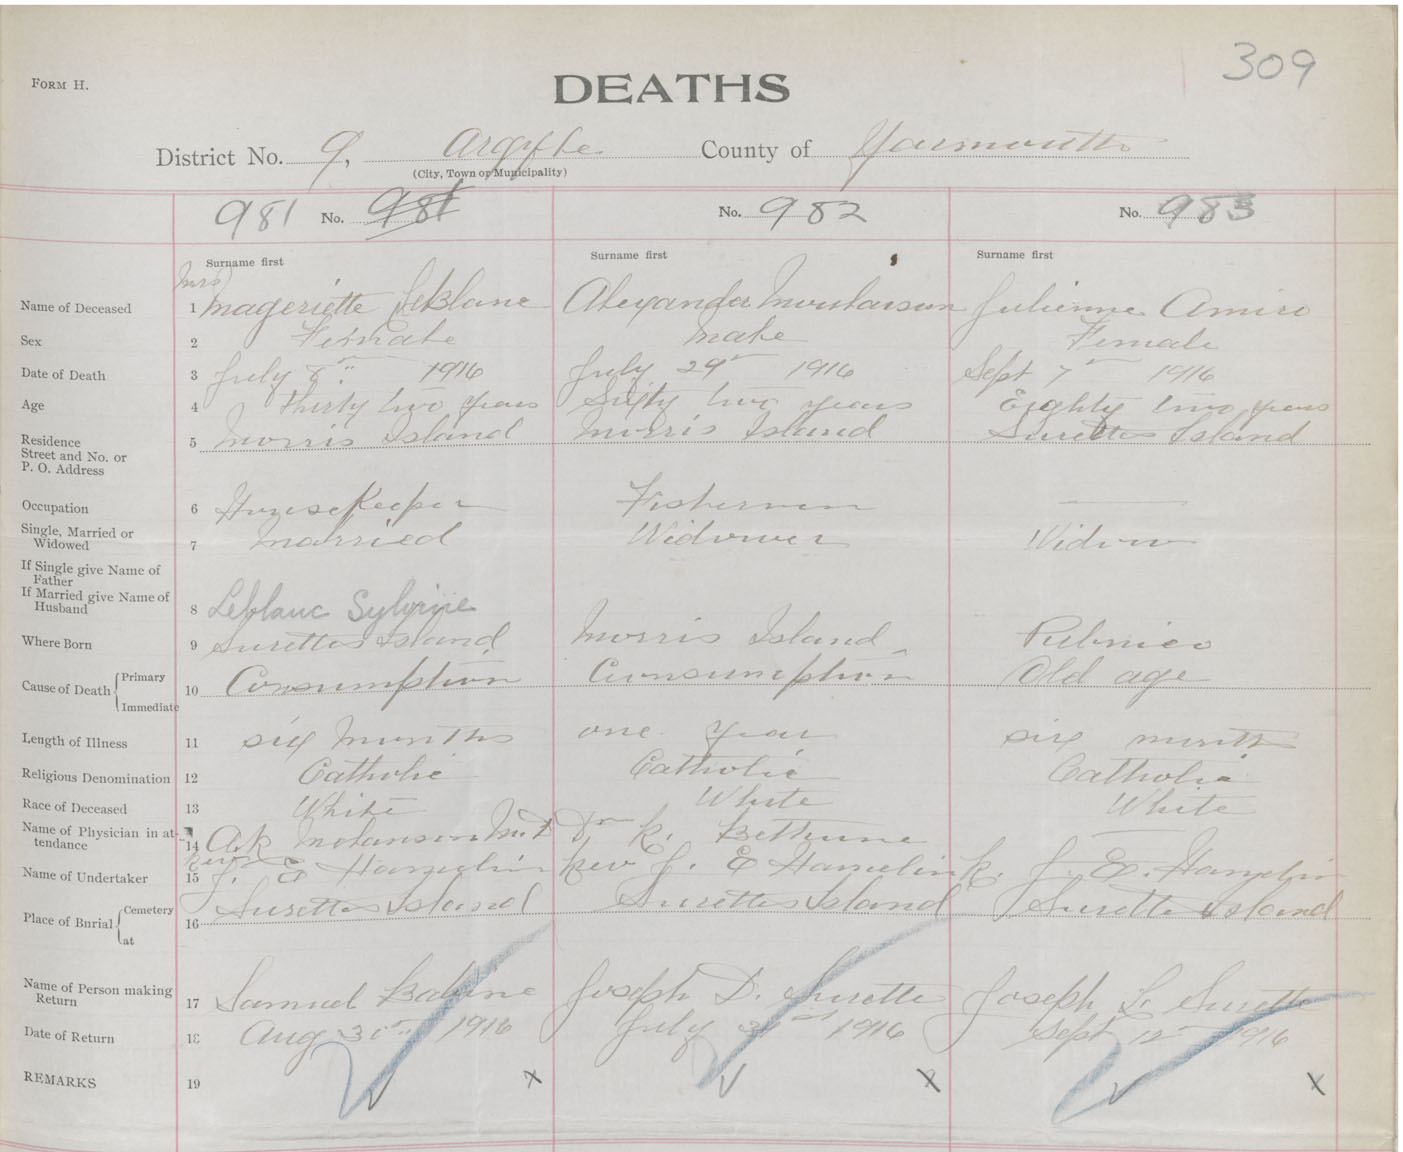 309
FORM H.
DEATHS
District No. 9, Argyle County of Yarmouth
(City, Town or Municipality)
981 No. 981 No. 982 No. 983
Surname first Surname first Surname first
Mrs
Name of Deceased 1 Mageriette LeBlanc Alexander Julienne Amiro
Sex 2 Female Male Female
Date of Death 3 July 8" 1916 July 29" 1916 Sept 7" 1916
Age 4 Thirty two years Sixty two years Eighty two years
Residence
Street and No. or
P. O. Address
5 Morris Island Morris Island Surettes Island
Occupation 6 HouseKeeper Fisherman —
Single, Married or
Widowed
7 Married Widower Widow
If Single give Name of
Father
If Married give Name of
Husband
8 Leblanc Sylvine
Where Born 9 Surettes Island Morris Island Pubnico
Cause of Death { Primary
Immediate
10 Consumption Consumption Old age
Length of Illness 11 six Months one year six months
Religious Denomination 12 Catholic Catholic Catholic
Race of Deceased 13 White White White
Name of Physician in at-
tendance
14 A.R. M.D Dr K. Bethune —
Name of Undertaker 15 Rev J. E Hamelin Rev J. E Hamelin R. J. E. Hamelin
Place of Burial { Cemetery
at
16 Surettes Island Surettes Island Surettes Island
Name of Person making
Return
17 Samuel Babine Joseph D. Surette Joseph L. Surette
Date of Return 18 Aug 1916 July 31 1916 Sept 12" 1916
REMARKS 19 x x x